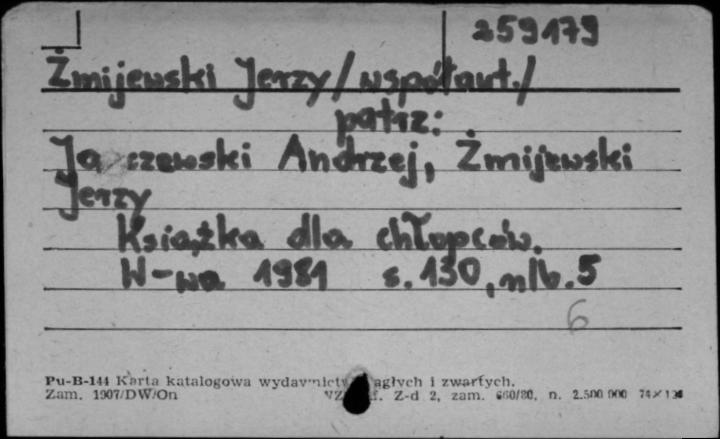 259179
Żmijewski Jerzy/współaut./
patrz:
Ja czewski Andrzej, Żmijewski
Jerzy
Książka dla chłopców.
W-wa 1981 s. 130, nlb. 5
6
Pu-B-144 Karta katalogowa wydawnictw ciągłych i zwartych.
Zam. 1907/DW/On Z-d 2, zam. 660/80, n. 2.500 000